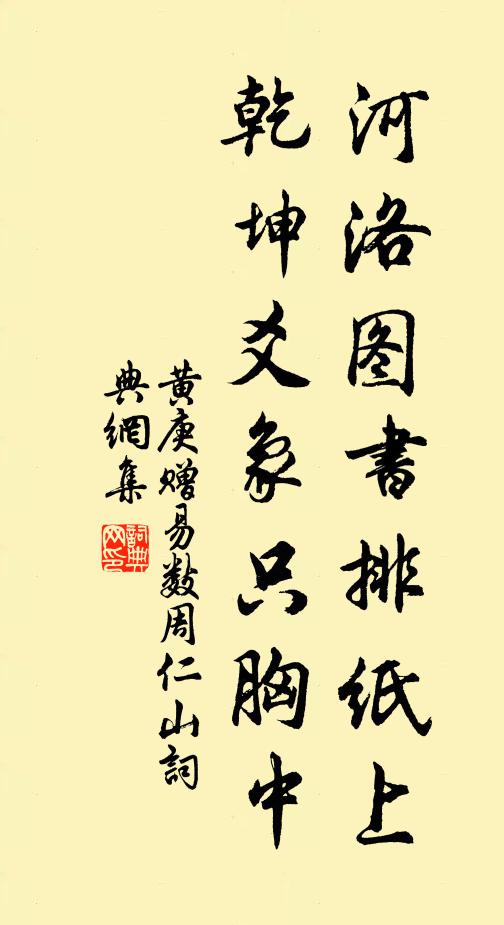 河洛图書排纸上
乾坤爻象只胸中
黄庚赠易数周仁山詞
典網集
詞典网印